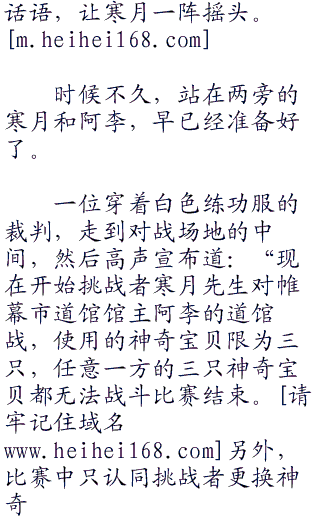 话语，让寒月一阵摇头。
[m.heihei168.com]
时候不久，站在两旁的
寒月和阿李，早已经准备好
了。
一位穿着白色练功服的
裁判，走到对战场地的中
间，然后高声宣布道：“现
在开始挑战者寒月先生对帷
幕市道馆馆主阿李的道馆
战，使用的神奇宝贝限为三
只，任意一方的三只神奇宝
贝都无法战斗比赛结束。[请
牢记住域名
www.heihei168.com]另外，
比赛中只认同挑战者更换神
奇